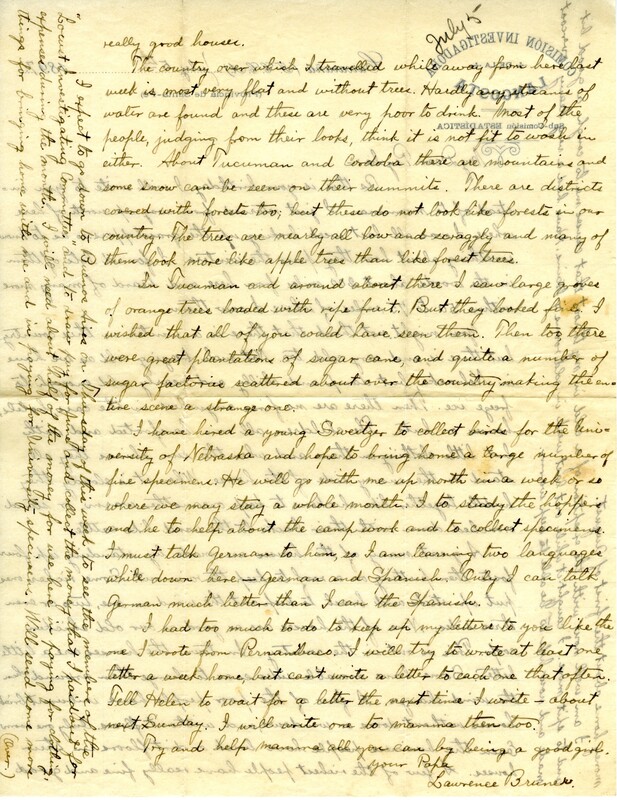 July 5
really good houses.
The country over which I travelled while away from here last
week is most very flat and without trees. Hardly any streams of
water are found and these are very poor to drink. Most of the
people, judging from their looks, think it is not fit to wash in
either. About Tucuman and Cordoba there are mountains and
some snow can be seen on their summits. There are districts
covered with forests too, but these do not look like forests in our
country. The trees are nearly all low and scraggly and many of
them look more like apple trees than like forest trees.
In Tucuman and around about there I saw large groves
of orange trees loaded with ripe fruit. But they looked fine. I
wished that all of you could have seen them. Then too there
were great plantations of sugar cane, and quite a number of
sugar factories scattered about over the country making the en-
tire scene a strange one.
I have hired a young Sweitzer to collect birds for the Uni-
versity of Nebraska and hope to bring home a large number of
fine specimens. He will go with me up north in a week or so
where we may stay a whole month. I to study the hoppers
and he to help about the camp work and to collect specimens.
I must talk German to him, so I am learning two languages
while down here — German and Spanish. Only I can talk
German much better than I can the Spanish.
I had too much to do to keep up my letters to you like the
one I wrote from Pernambuco. I will try to write at least one
letter a week home, but can't write a letter to each one that often.
Tell Helen to wait for a letter the next time I write — about
next Sunday. I will write one to mamma then too.
Try and help mamma all you can by being a good girl.
your Papa
Lawrence Bruner.
I expect to go down to Buenos Aires on Tuesday of this week to see the members of the
"Locust investigating Committee" and to draw pay for June and collect the money that I paid out for
expenses during the month. I will need about half of the money for use here in paying for clothing,
things for bringing home with me and in paying for University specimens. Will send some more
(over.)
COMISION INVESTIGADORA
LANGOSTA
Sub-Comisión ESTADISTICA